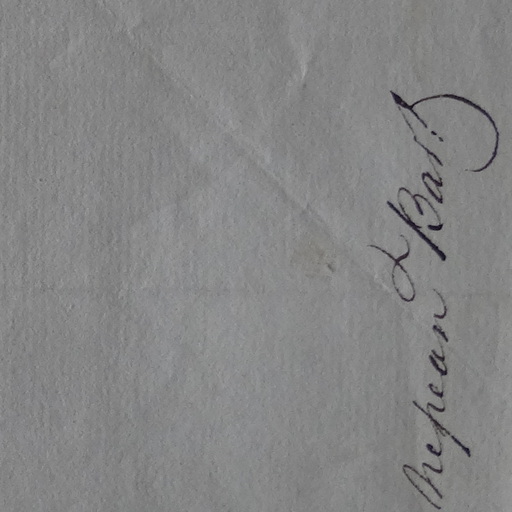 Nepean Bart